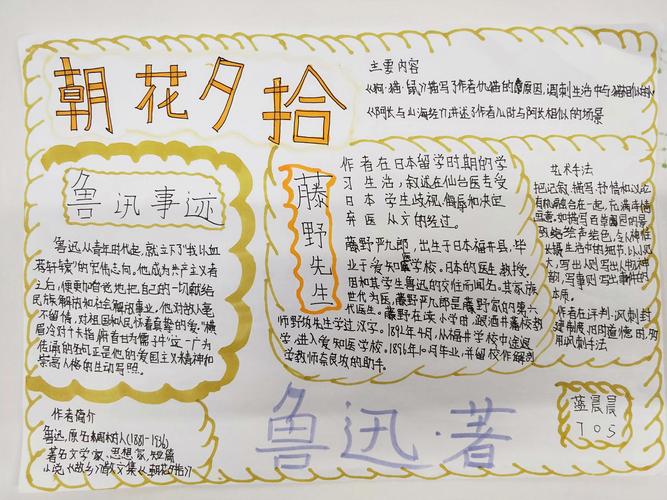 朝花夕拾
主要内容
《狗·猫·鼠》描写了作者仇猫的原因,讽刺生活中与猫相似的
《阿长与山海经》讲述了作者儿时与阿长相似的场景
鲁迅事迹
鲁迅从青年时代起,就立下了"我以血
荐轩辕"的宏伟志向。他成为共产主义者
之后,便更加自觉地把自己的一切献给
民族解放和社会解放事业,他对敌人毫
不留情,对祖国和人民怀着真挚的爱。"横
眉冷对千夫指,俯首甘为孺子牛"这一广为
传诵的
正是他的爱国主义精神和
崇高人格的生动写照。
藤野先生
作者在日本留学时期的学
习生活,叙述在仙台医专受
日本学生歧视、侮辱和决定
弃医从文的经过。
藤野严九郎,出生于日本福井县,毕
业于爱知医学校。日本的医生、教授,
因和其学生鲁迅的交往而闻名。其家族
世代为医,藤野严九郎是藤野家的第六
代医生。藤野在读小学时,跟酒井藩校教
师野坂先生学过汉字。1892年4月,从福井学校中途退
学,进入爱知医学校。1896年10月毕业,并留校作解剖
学教师奈良坂的助手。
艺术手法
把记叙、描写、抒情和议论
有机融合在一起,充满诗情
画意。如描写百草园的景
致绘声绘色,令人神往
生活中的细节,以小见
大,写出人物
本质。
作者在评判、讽刺封
建制度、旧道德时,多
用讽刺手法
作者简介
鲁迅,原名周树人(1881-1936)
著名文学家、思想家,短篇
小说《故乡》散文集《朝花夕拾》
鲁迅·著
蓝晨晨
705